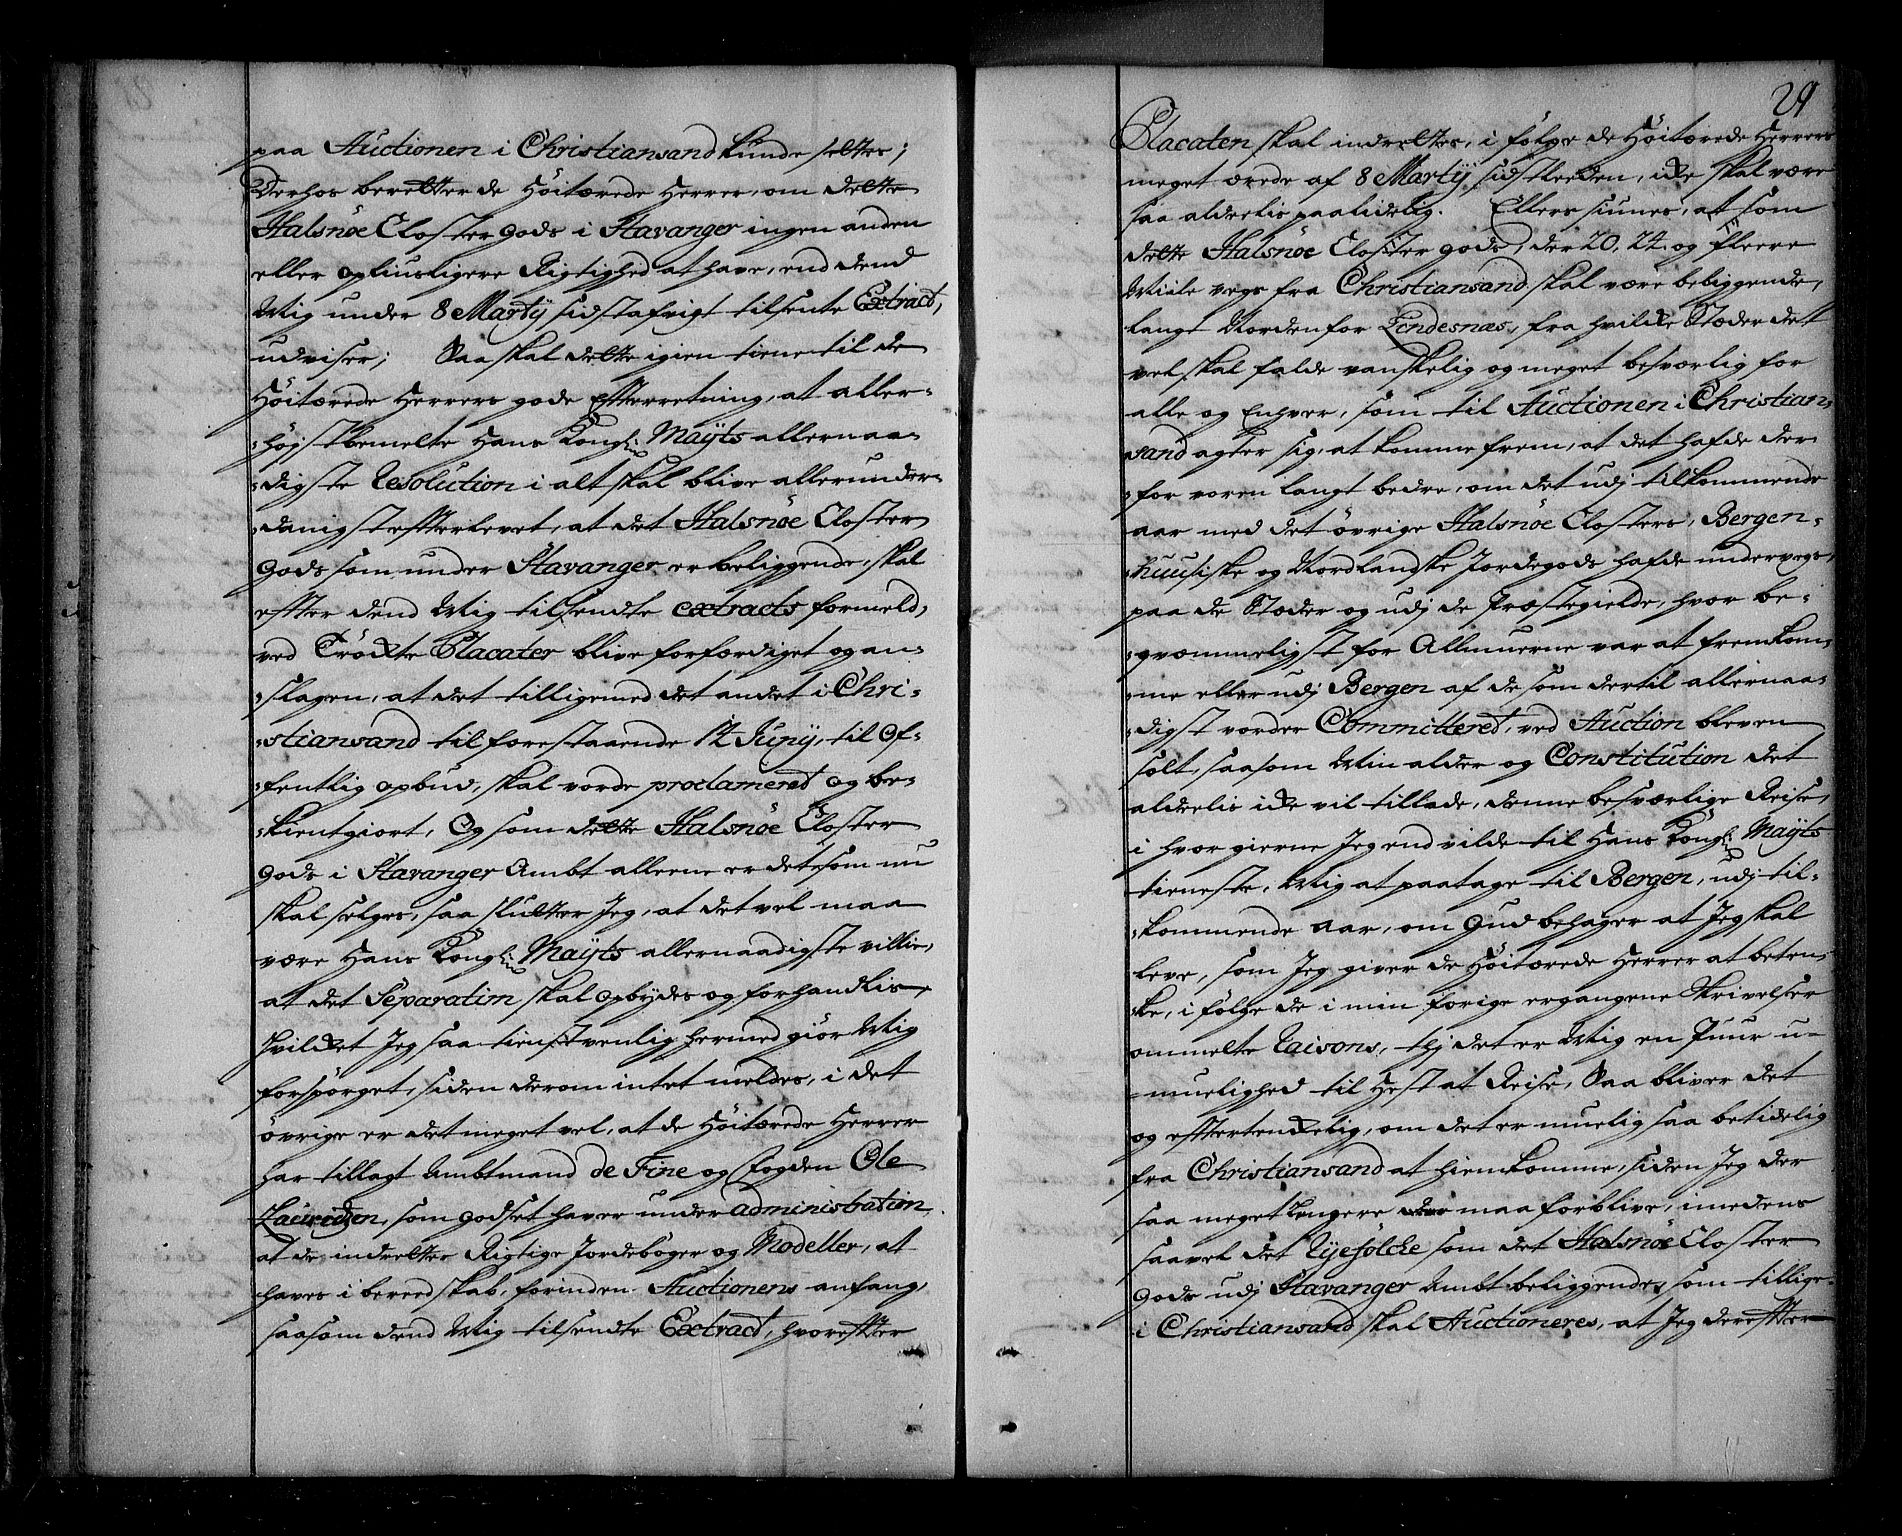 paa Auctionen i Christiansand kunde settes;
Derhos beretter de Höitærede Herrer, om dette
Halsnöe Closter gods i Stavanger ingen anden
eller opliusligere Rigtighed at have, end dend
Mig under 8 Martij sidst afvigt tilsente Extract,
udviser; Saa skal dette igien tiene til de
Höitærede Herrers gode Effterretning, at aller-
:högstbemelte Hans Kongl: Mayts allernaa-
:digste Resolution i alt skal blive allerunder-
:danigst effterlevet, at det Halsnöe Closter
Gods som under Stavanger er beliggende, skal
effter dend Mig tilsendte extracts formeld,
ved Tröckte Placater blive forfærdiget og an-
:slagen, at det tilligemed det andet i Chri-
:stiansand til forestaaende 12 Junij, til Of-
:fentlig opbud, skal vorde proclameret og be-
:kientgiort, Og som dette Halsnöe Closter
Gods i Stavanger Ambt alleene er det som nu
skal selges, saa slutter Jeg, at det vel maa
være Hans Kongl: Mayts allernaadigste villie,
at det Separatim skal opbydes og forhandlis,
hvilcket Jeg saa tienstvenlig hermed giör Mig
forspörget, siden derom intet meldes, i det
övrige er det meget vel, at de Höitærede Herrer
har tillagt Ambtmand de Fine og Fogden Ole
Lauridzen, som godset haver under administration
at de indretter Rigtige Jordebøger og Modeller, at
haves i bereedskab, forinden Auctionens anfang,
saasom dend Mig tilsendte Extract, hvoreffter
29
Placaten skal indrettes, i fölge de Höitærede Herrers
meget ærede af 8 Martij sidstleeden, icke skal være
saa aldeelis paalidelig. Ellers siunes, at som
dette Halsnöe Closter gods, der 20, 24 og fleere
Miile vegs fra Christiansand skal være beliggende,
langt Norden for Lindesnæs, fra hvilcke Stæder det
vel skal falde vanskelig og meget besværlig for
alle og Enhver, som til Auctionen i Christian-
sand agter sig, at komme frem, at det hafde der-
:for voren langt bedre, om det udj tilkommende
aar med det övrige Halsnöe Closters, Bergen-
:huusiske og Nordlandske Jordegods hafde underveys,
paa de Stæder og udj de Præstegielde, hvor be-
:qvæmmeligst for Allmuerne var at fremkom-
:me eller udj Bergen af de som dertil allernaa-
:digst vorder Committeret, ved Auction bleven
solt, saasom Min alder og Constitution det
aldeelis icke vil tillade, denne besværlige Reise,
i hvor gierne Jeg end vilde til Hans Kongl: Mayts
tieneste, Mig at paatage til Bergen, udj til-
:kommende aar, om Gud behager at Jeg skal
leve, som Jeg giver de Höitærede Herrer at beten-
ke, i fölge de i min forige ergangene Skrivelser
ommelte Raisons, thj det er Mig en Puur u-
:muelighed til Hest at Reise, Saa bliver det
og effterteenkelig, om det er muelig saa betidelig
fra Christiansand at hiemkomme, siden Jeg der
saa meget længere maa forblive, imedens
saavel det Ryefölcke som det Halsnöe Closter
Gods udj Stavanger Ambt beliggende, som tillige
i Christiansand skal Auctioneres, at Jeg dereffter